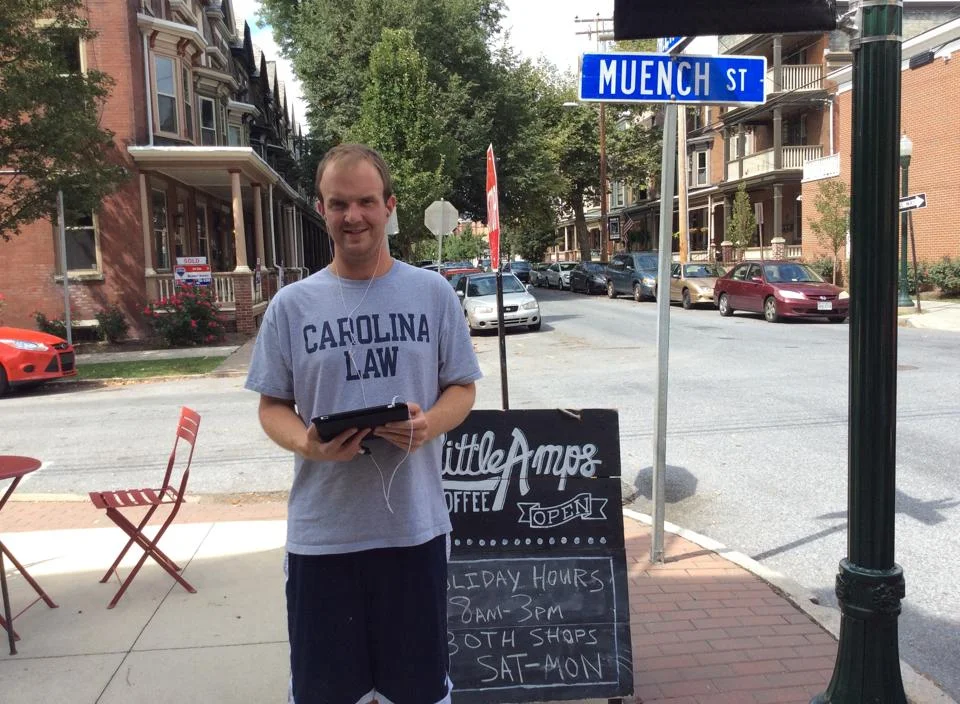 MUENCH ST
SOLD
CAROLINA
LAW
Little Amps
COFFEE
OPEN
HOLIDAY HOURS
8AM-3PM
BOTH SHOPS
SAT-MON